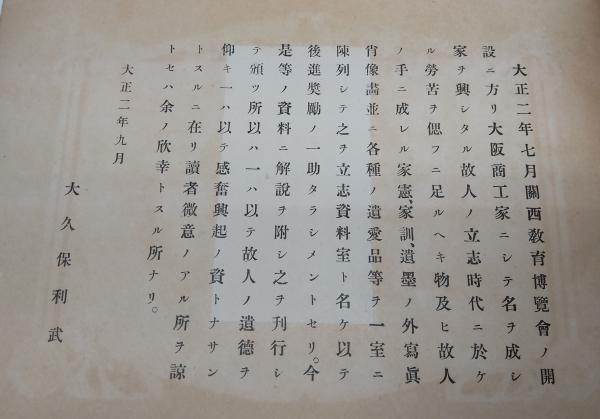 大正二年七月關西敎育博覽會ノ開
設ニ方リ大阪商工家ニシテ名ヲ成シ
家ヲ興シタル故人ノ立志時代ニ於ケ
ル勞苦ヲ偲フニ足ルヘキ物及ヒ故人
ノ手ニ成レル家憲、家訓、遺墨ノ外寫眞
肖像畵並ニ各種ノ遺愛品等ヲ一室ニ
陳列シテ之ヲ立志資料室ト名ケ以テ
後進奬勵ノ一助タラシメントセリ。今
是等ノ資料ニ解說ヲ附シ之ヲ刊行シ
テ頒ツ所以ハ一ハ以テ故人ノ遺德ヲ
仰キ一ハ以テ感奮興起ノ資トナサン
トスルニ在リ讀者微意ノアル所ヲ諒
トセハ余ノ欣幸トスル所ナリ。
大正二年九月
大久保利武